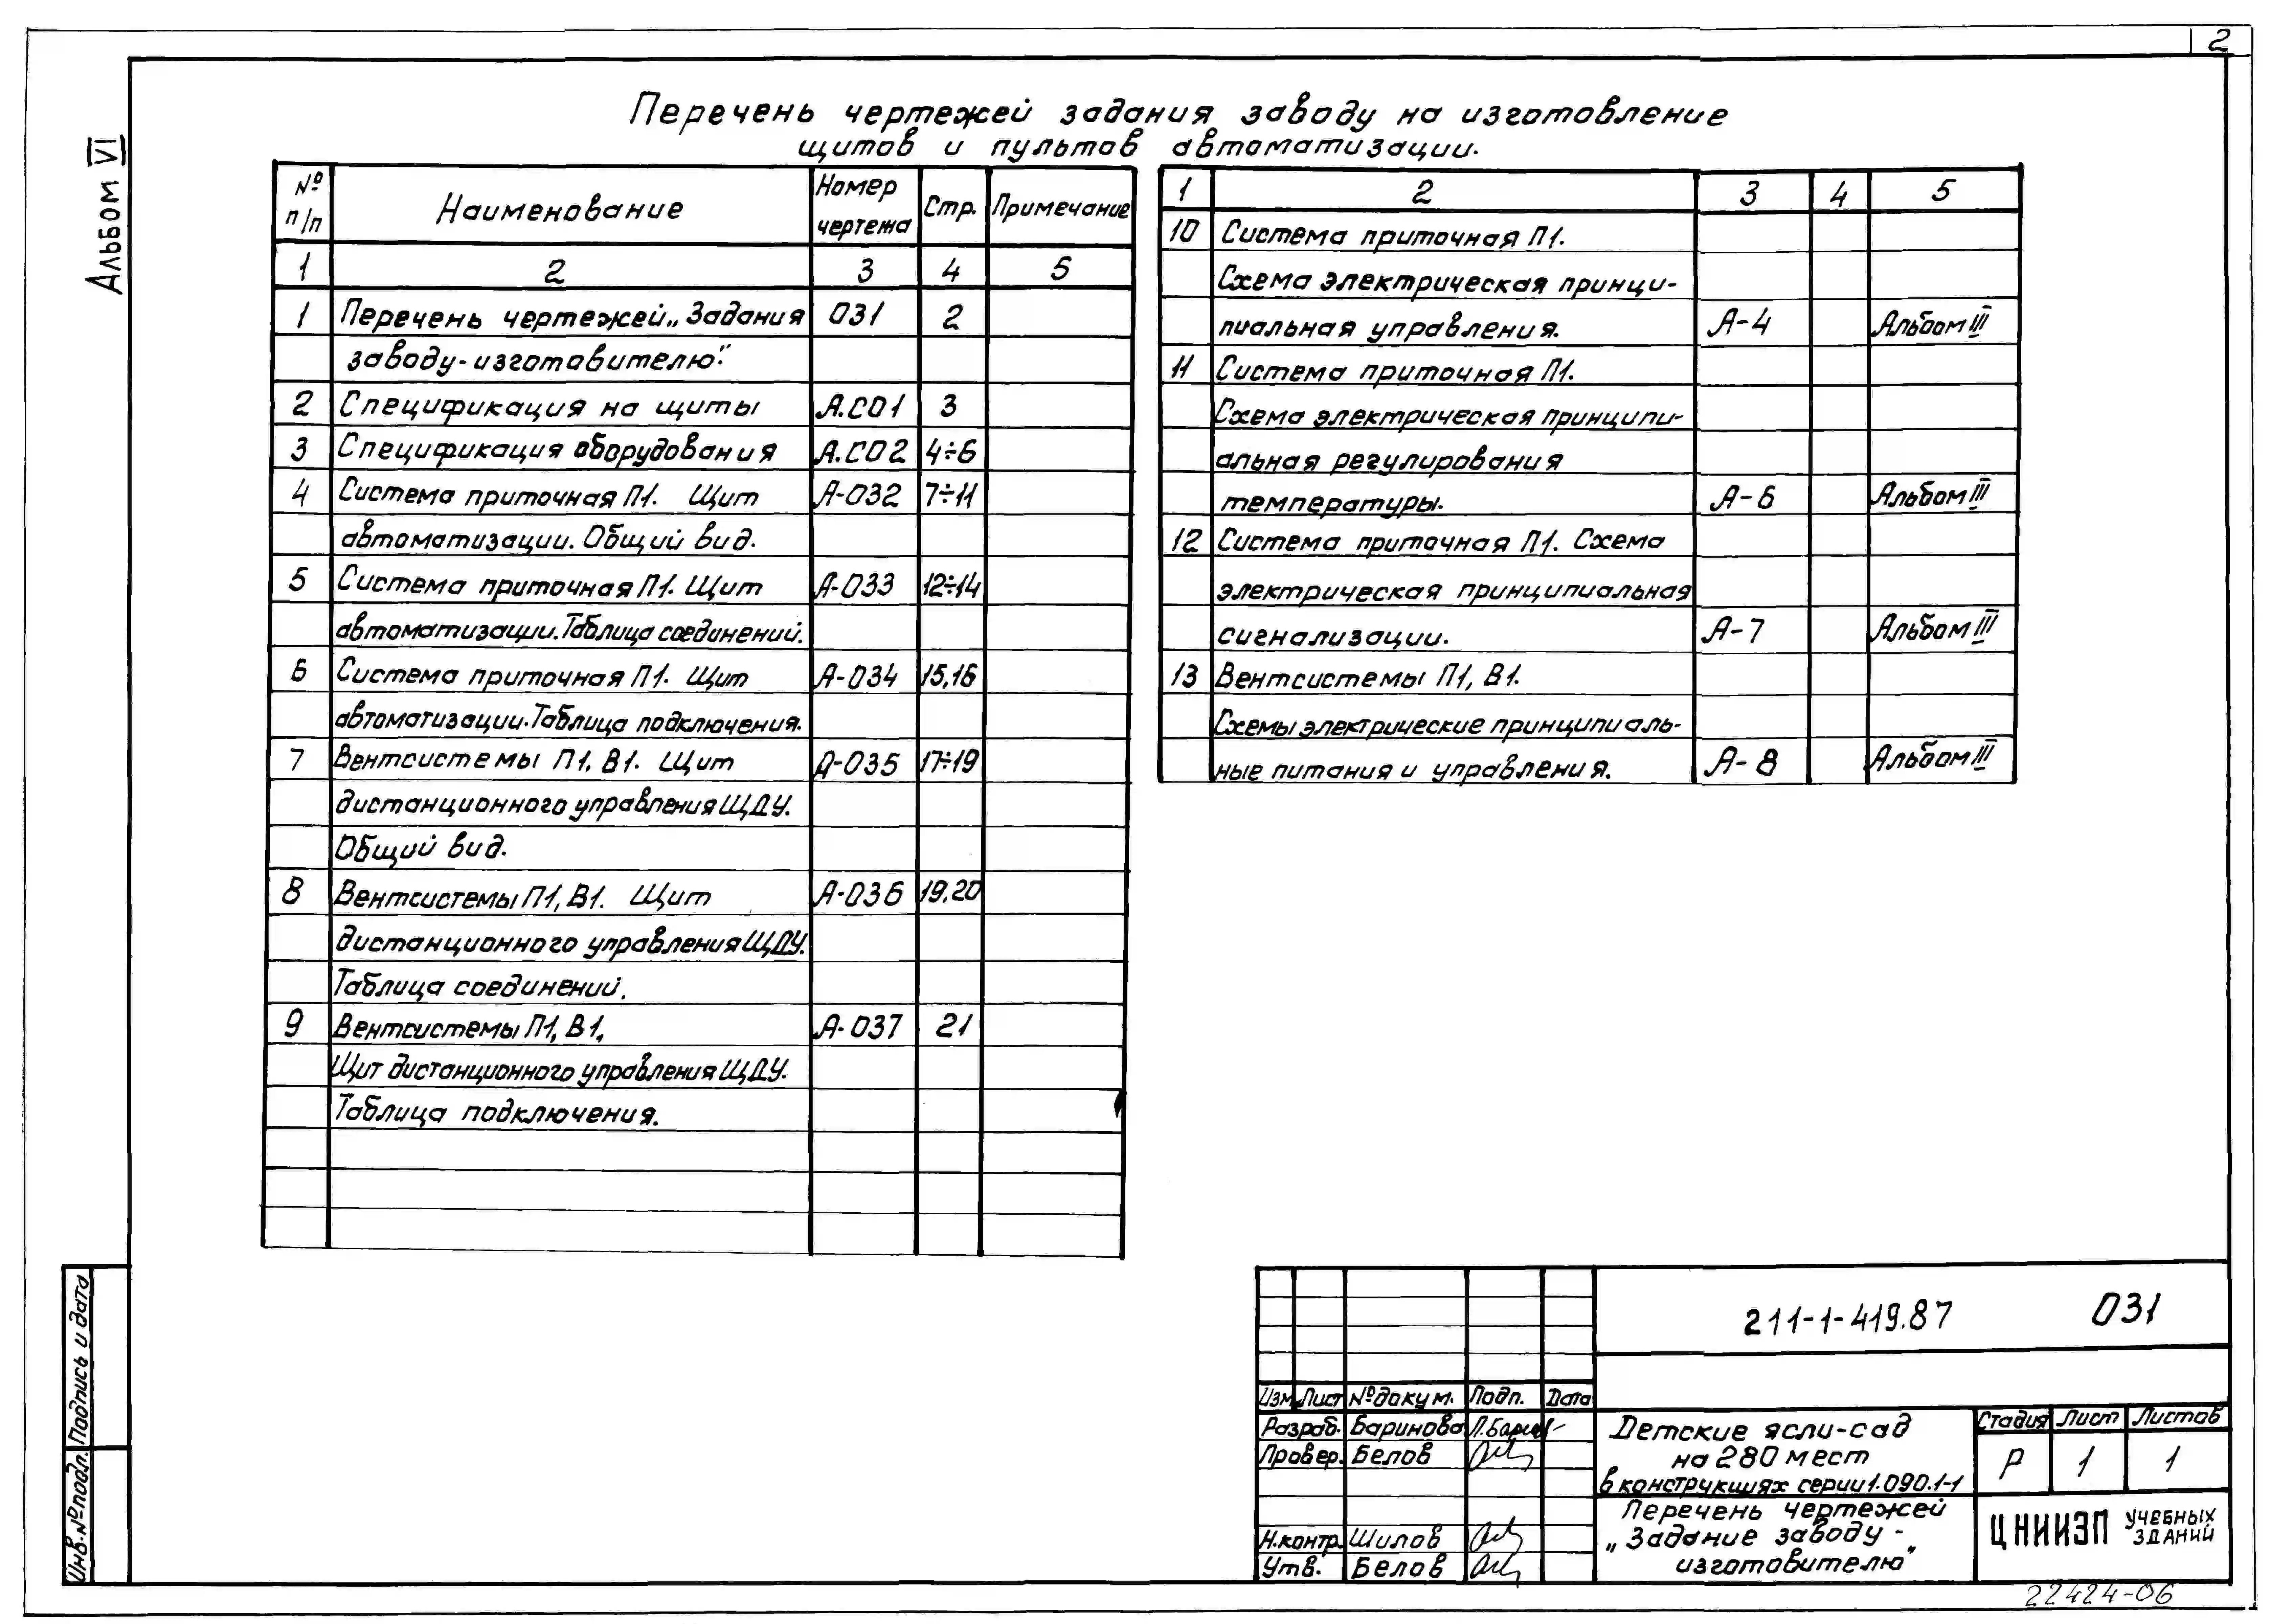 2
Альбом VI
Перечень чертежей задания заводу на изготовление
щитов и пультов автоматизации.
№ п/п Наименование Номер чертежа Стр. Примечание
1 2 3 4 5
1 Перечень чертежей „Задания 031 2
заводу-изготовителю".
2 Спецификация на щиты А.СО1 3
3 Спецификация оборудования А.СО2 4÷6
4 Система приточная П1. Щит А-032 7÷11
автоматизации. Общий вид.
5 Система приточная П1. Щит А-033 12÷14
автоматизации. Таблица соединений.
6 Система приточная П1. Щит А-034 15,16
автоматизации. Таблица подключения.
7 Вентсистемы П1, В1. Щит А-035 17÷19
дистанционного управления ЩДУ.
Общий вид.
8 Вентсистемы П1, В1. Щит А-036 19,20
дистанционного управления ЩДУ.
Таблица соединений.
9 Вентсистемы П1, В1, А-037 21
Щит дистанционного управления ЩДУ.
Таблица подключения.
1 2 3 4 5
10 Система приточная П1.
Схема электрическая принци-
пиальная управления. А-4 Альбом III
11 Система приточная П1.
Схема электрическая принципи-
альная регулирования
температуры. А-6 Альбом III
12 Система приточная П1. Схема
электрическая принципиальная
сигнализации. А-7 Альбом III
13 Вентсистемы П1, В1.
Схемы электрические принципиаль-
ные питания и управления. А-8 Альбом III
Подпись и дата
Инв.№подл.
211-1-419.87 031
Изм Лист №докум. Подп. Дата
Разраб. Баринова
Провер. Белов
Н.контр. Шилов
Утв. Белов
Детские ясли-сад
на 280 мест
в конструкциях серии 1.090.1-1
Стадия Лист Листов
Р 1 1
Перечень чертежей
„Задание заводу-
изготовителю"
ЦНИИЭП УЧЕБНЫХ ЗДАНИЙ
22424-06